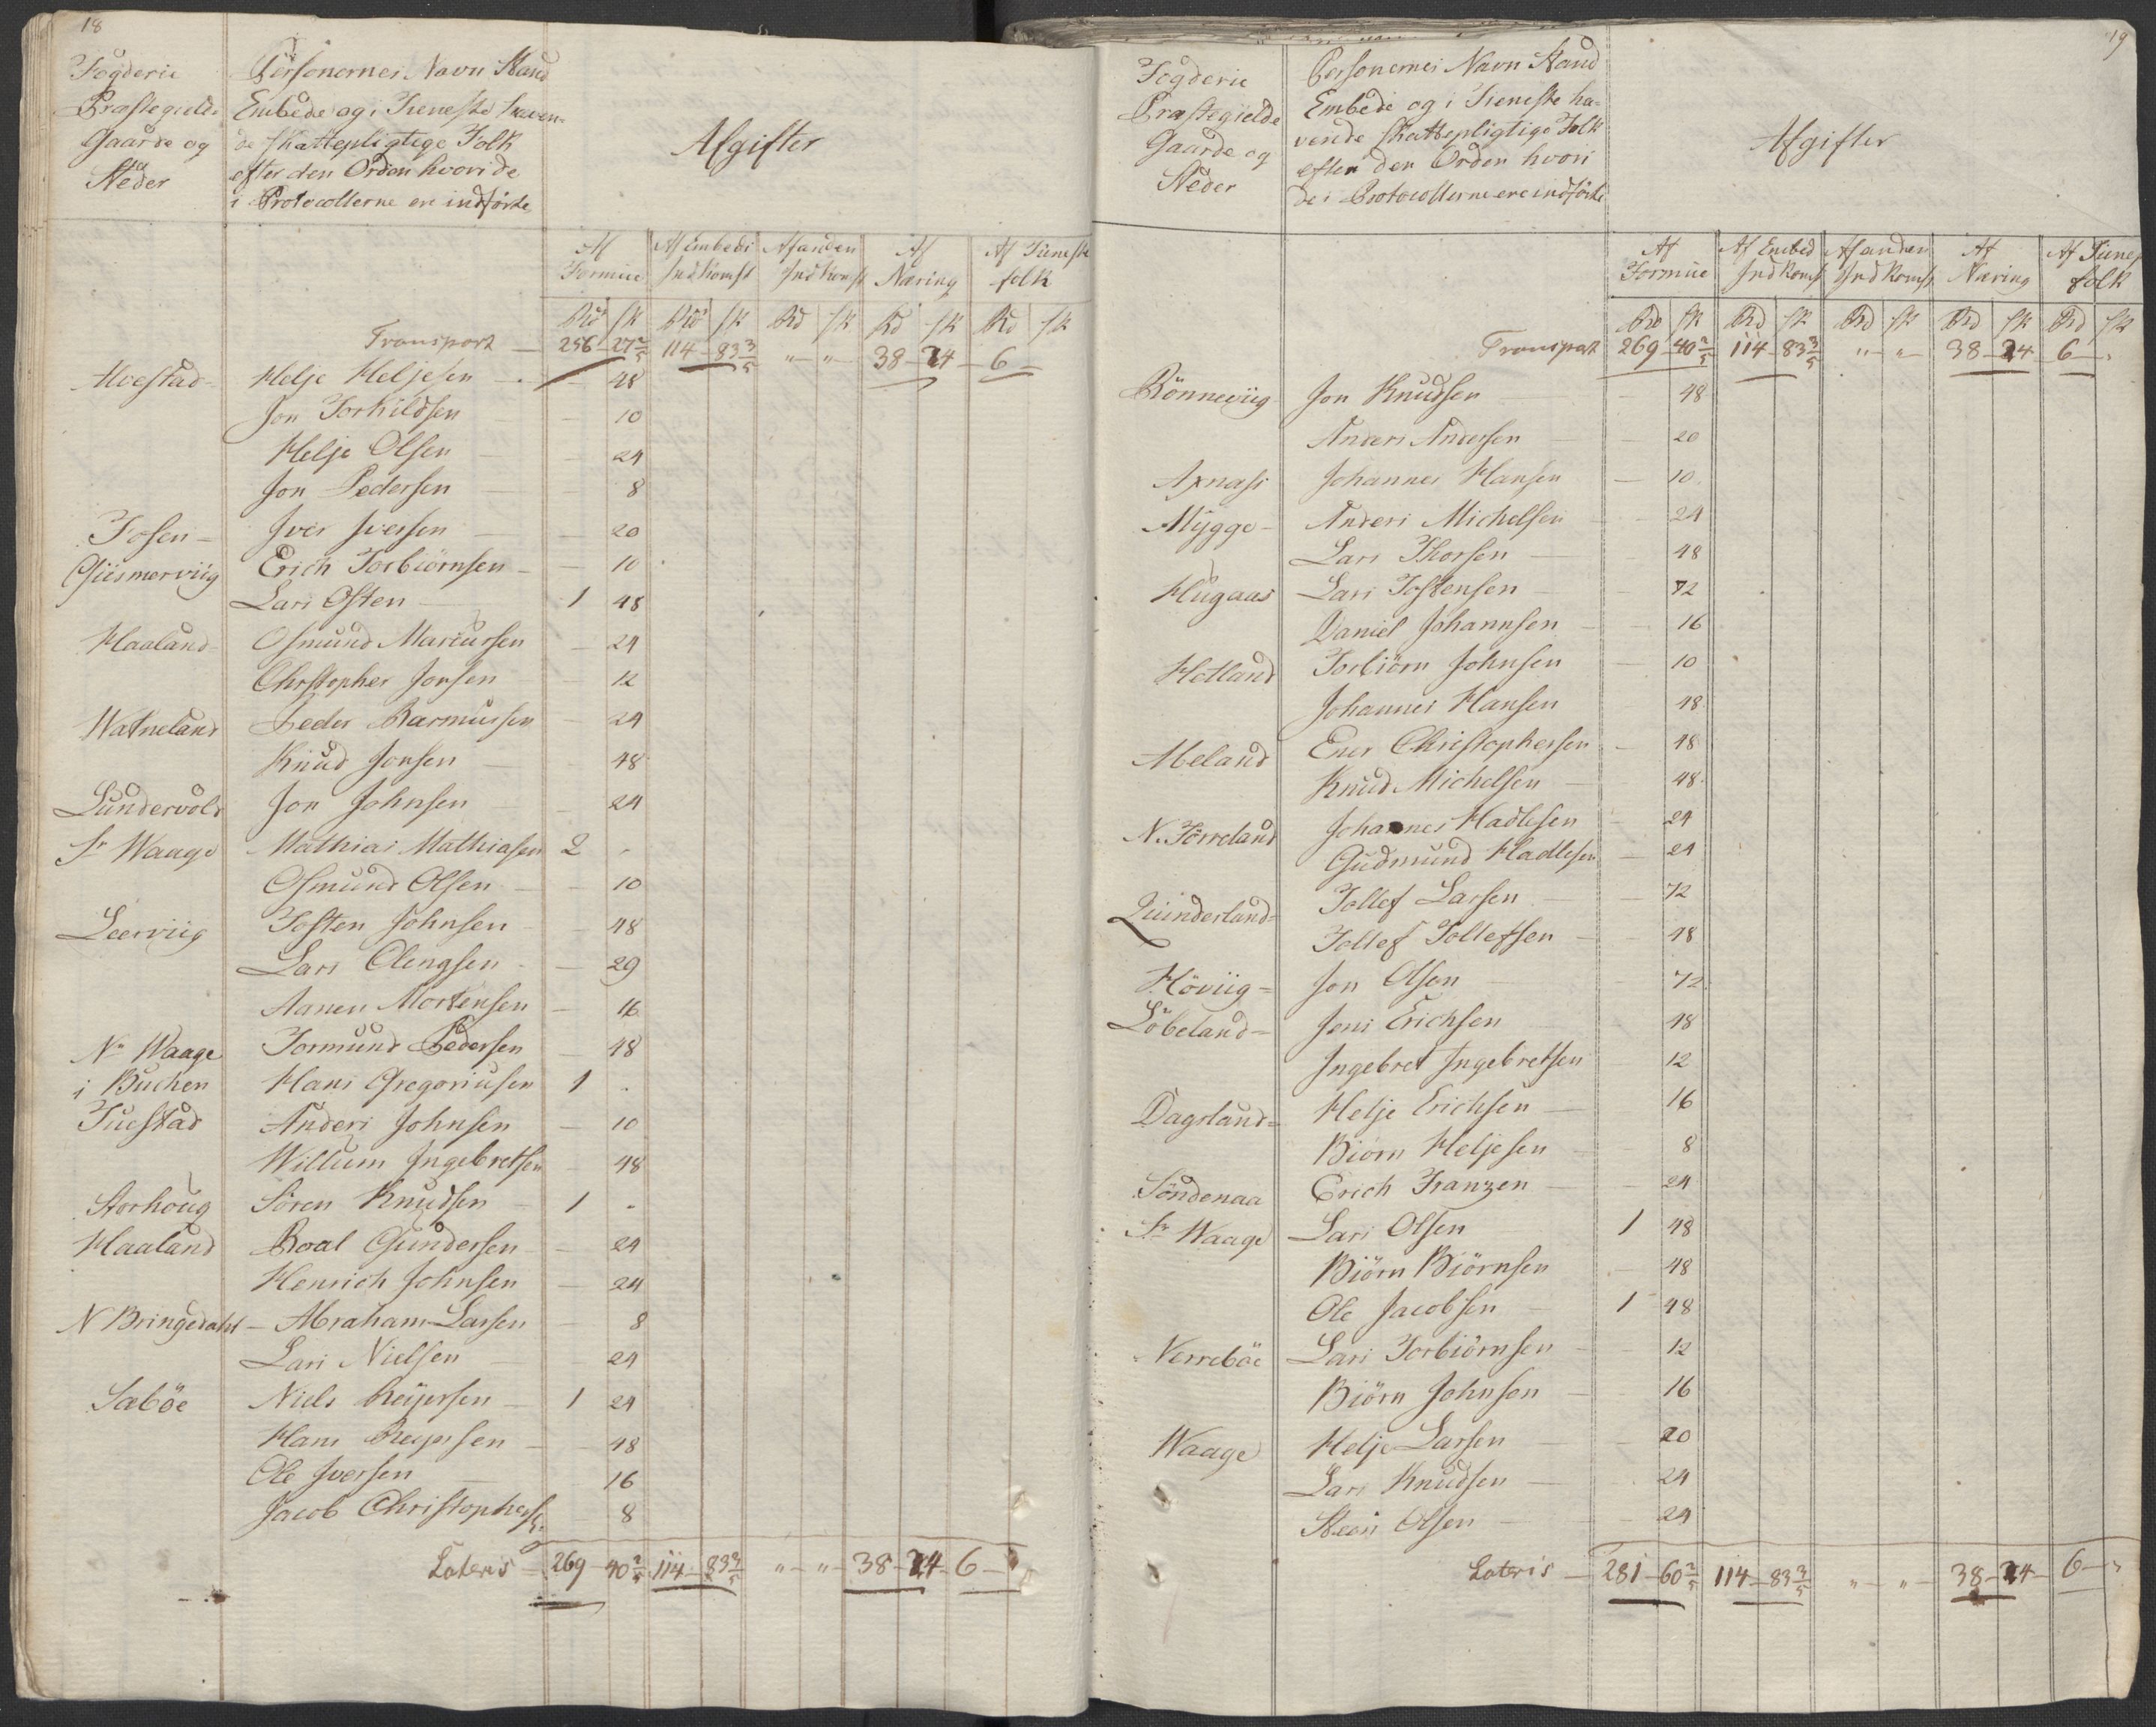 18
Fogderie
Præstegield
Gaarde og
Stæder
Personernes Navn Stand
Embede og i Tieneste haven-
de skattepligtige Folk
efter den Orden hvori de
i Protocollerne ere indförte
Afgifter
Af Formue Af Embeds Indkomst Af anden Indkomst Af Næring Af Tieneste folk
Rd sk Rd sk Rd sk Rd sk Rd sk
Transport — 256 - 27 2/5 114 - 83 3/5 " - " - 38 - 24 - 6 -
Alvestad - Helje Heljesen — 48
Jon Torkildsen — 10
Helje Olsen — 24
Jon Pedersen — 8
Fosen - Iver Iversen — 20
Giismerviig Erich Torbiörnsen — 10
Lars Osten — 1 48
Haaland - Osmund Mariussen — 24
Chrstopher Jonsen — 12
Watneland Peder Rasmussen — 24
Knud Jonsen — 48
Lundervold Jon Johnsen — 24
Sr Waage Mathias Mathiasen 2 -
Osmund Olsen — 10
Leerviig Tosten Johnsen — 48
Lars Olengsen — 29
Aanen Mortensen — 16
Nr Waage Tormund Pedersen — 48
i Buchen Hans Gregoriusen 1 .
Tuestad Anders Johnsen — 10
Willum Ingebretsen — 48
Storhoug Sören Knudsen — 1 -
Haaland Roal Gundersen — 24
Henrich Johnsen — 24
N Bringedahl - Abraham Larsen — 8
Lars Nielsen — 24
Sæböe Niels Reijersen — 1 24
Hans Reijersen — 48
Ole Iversen — 16
Jacob Christophers. — 8
Lateris = 269 - 40 2/5 114 - 83 3/5 " - " - 38 - 24 - 6 -
19
Fogderie
Præstegielde
Gaarde og
Stæder
Personernes Navn Stand
Embede og i Tieneste ha-
vende skattepligtige Folk
efter den Orden hvori
de i Protocollerne ere indförte
Afgifter
Af Formue Af Embed Indkomst Af anden Indkomst Af Næring Af Tienest folk
Rd sk Rd sk Rd sk Rd sk Rd sk
Transport 269 - 40 2/5 114 - 83 3/5 " - " - 38 - 24 6 -
Rönneviig Jon Knudsen — 48
Anders Andersen — 20
Axnæs Johannes Hansen — 10
Mygge - Anders Michelsen — 24
Lars Thorsen — 48
Hugaas Lars Tostensen — 72
Daniel Johannsen — 16
Hetland Torbiörn Johnsen — 10
Johannes Hansen 48
Meland Ener Christophersen — 48
Knud Michelsen — 48
N. Förreland Johannes Hadlesen — 24
Gudmund Hadlesen — 24
Qvinderland= Tollef Larsen — 72
Tollef Tollefsen — 48
Höviig = Jon Olsen — 72
Löbeland= Jens Erichsen 48
Ingebret Ingebretsen 12
Dagsland= Helje Erichsen — 16
Biörn Heljesen — 8
Söndenaa Erich Franzen — 24
Sr Waage Lars Olsen 1 48
Biörn Biörnsen — 48
Ole Jacobsen — 1 48
Nerreböe Lars Torbiörnsen — 12
Biörn Johnsen — 16
Waage Helje Larsen — 20
Lars Knudsen — 24
Steen Olsen — 24
Lateris — 281 - 60 2/5 114 - 83 3/5 " - " - 38 - 24 - 6 -